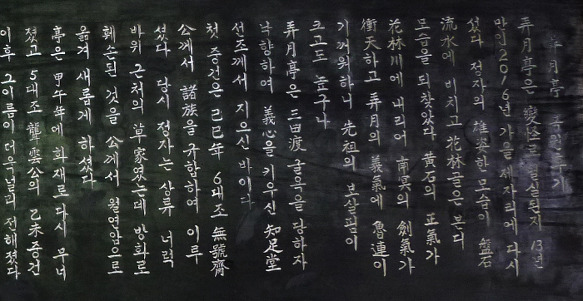 弄月亭 중건후기
弄月亭은 變怪로 잃은지 13년
만인 2016년 가을 제자리에 다시
섰다 정자의 雄姿한 모습이 盤石
流水에 비치고 花林골은 본디
모습을 되찾았다 黃石의 正氣가
花林川에 내리어 南冥의 劍氣가
衝天하고 弄月의 義氣에 魯連이
기꺼워하니 先祖의 보살핌이
크고도 높구나
弄月亭은 三田渡 굴욕을 당하자
낙향하여 義心을 키우신 知足堂
선조께서 지으신 바이다
첫 중건은 己巳年 6대조 無號齋
公께서 諸族을 규합하여 이루
셨다 당시 정자는 상류 너럭
바위 근처의 草家였는데 방화로
훼손된 것을 公께서 월연암으로
옮겨 새롭게 하셨다
亭은 甲午年에 화재로 다시 무너
졌고 5대조 龍雲公의 乙未중건
이후 그 이름이 더욱 널리 전해졌다